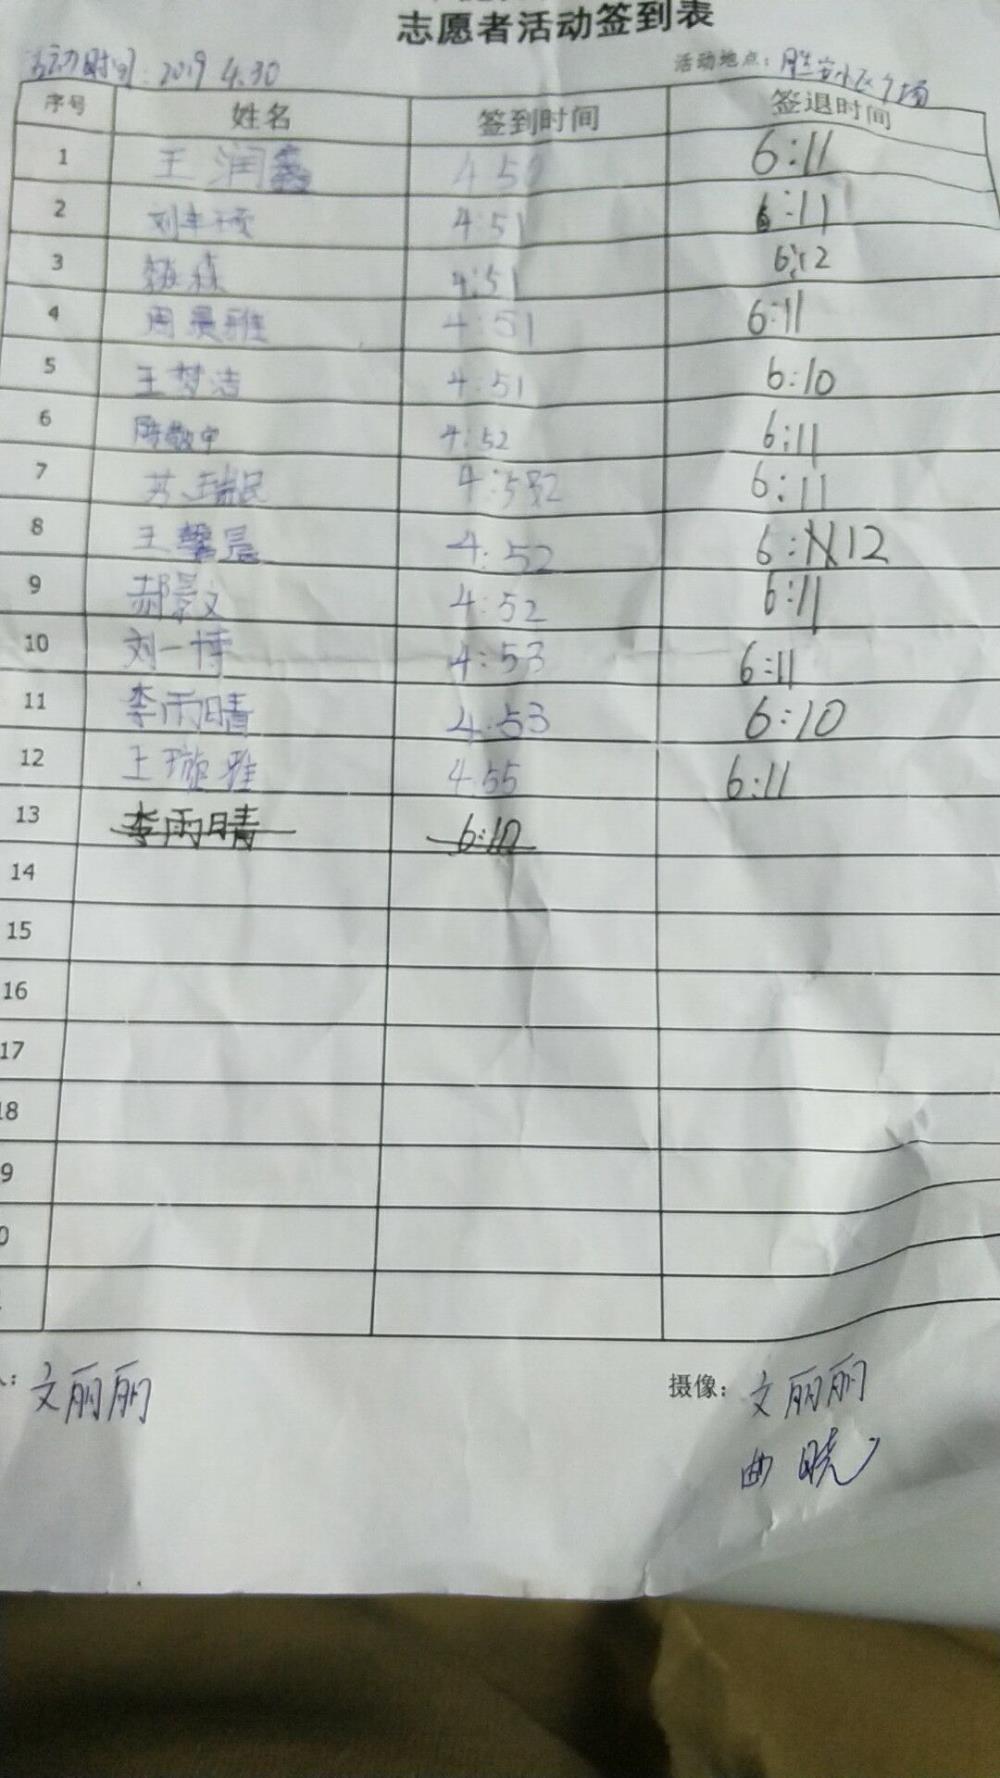 志愿者活动签到表
活动时间：2019 4.30 活动地点：胜安小区广场
序号 姓名 签到时间 签退时间
1 王润鑫 4 5 6:11
2 刘丰硕 4:51 6:11
3 森 4:51 6:12
4 周晨雅 4:51 6:11
5 王梦洁 4:51 6:10
6 4:52 6:11
7 瑞民 4:52 6:11
8 王馨晨 4:52 6:12
9 郝景文 4:52 6:11
10 刘一博 4:53 6:11
11 李雨晴 4:53 6:10
12 王璇雅 4.55 6:11
13 李雨晴 6:10
14
15
16
17
18
9
0
：文丽丽 摄像：文丽丽
曲晓